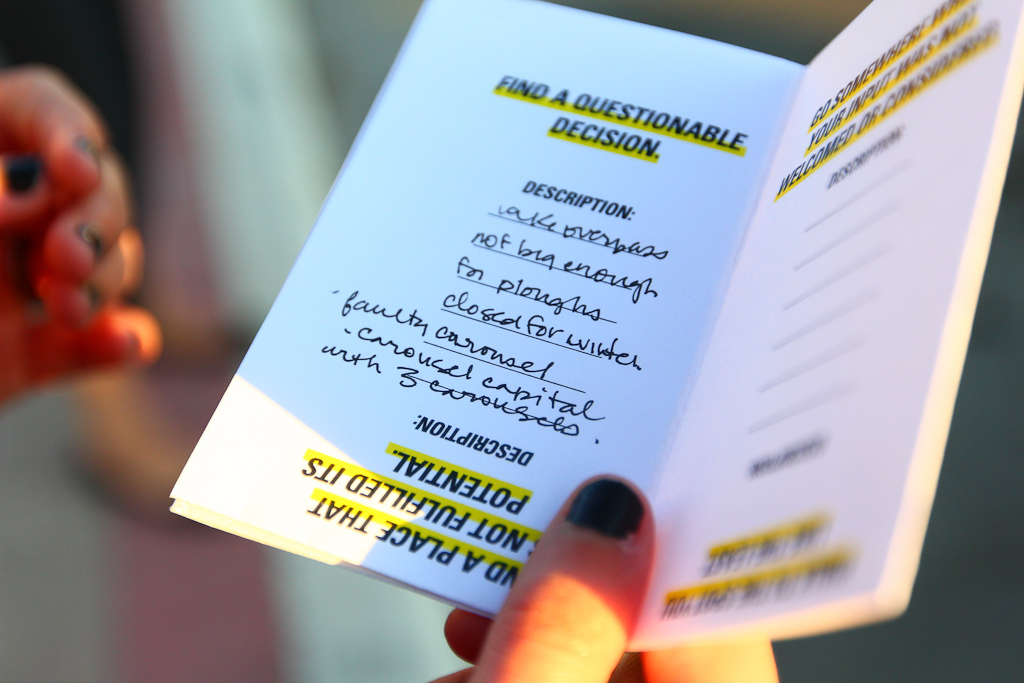 FIND A QUESTIONABLE
DECISION.
DESCRIPTION:
overpass
not big enough
for ploughs
closed for winter
· faulty carousel
· carousel capital
with 3 carousels.
DESCRIPTION:
POTENTIAL.
NOT FULFILLED ITS
A PLACE THAT
GO SOMEWHERE
YOUR INPUT WAS NOT
WELCOMED OR CONSIDERED.
DESCRIPTION: